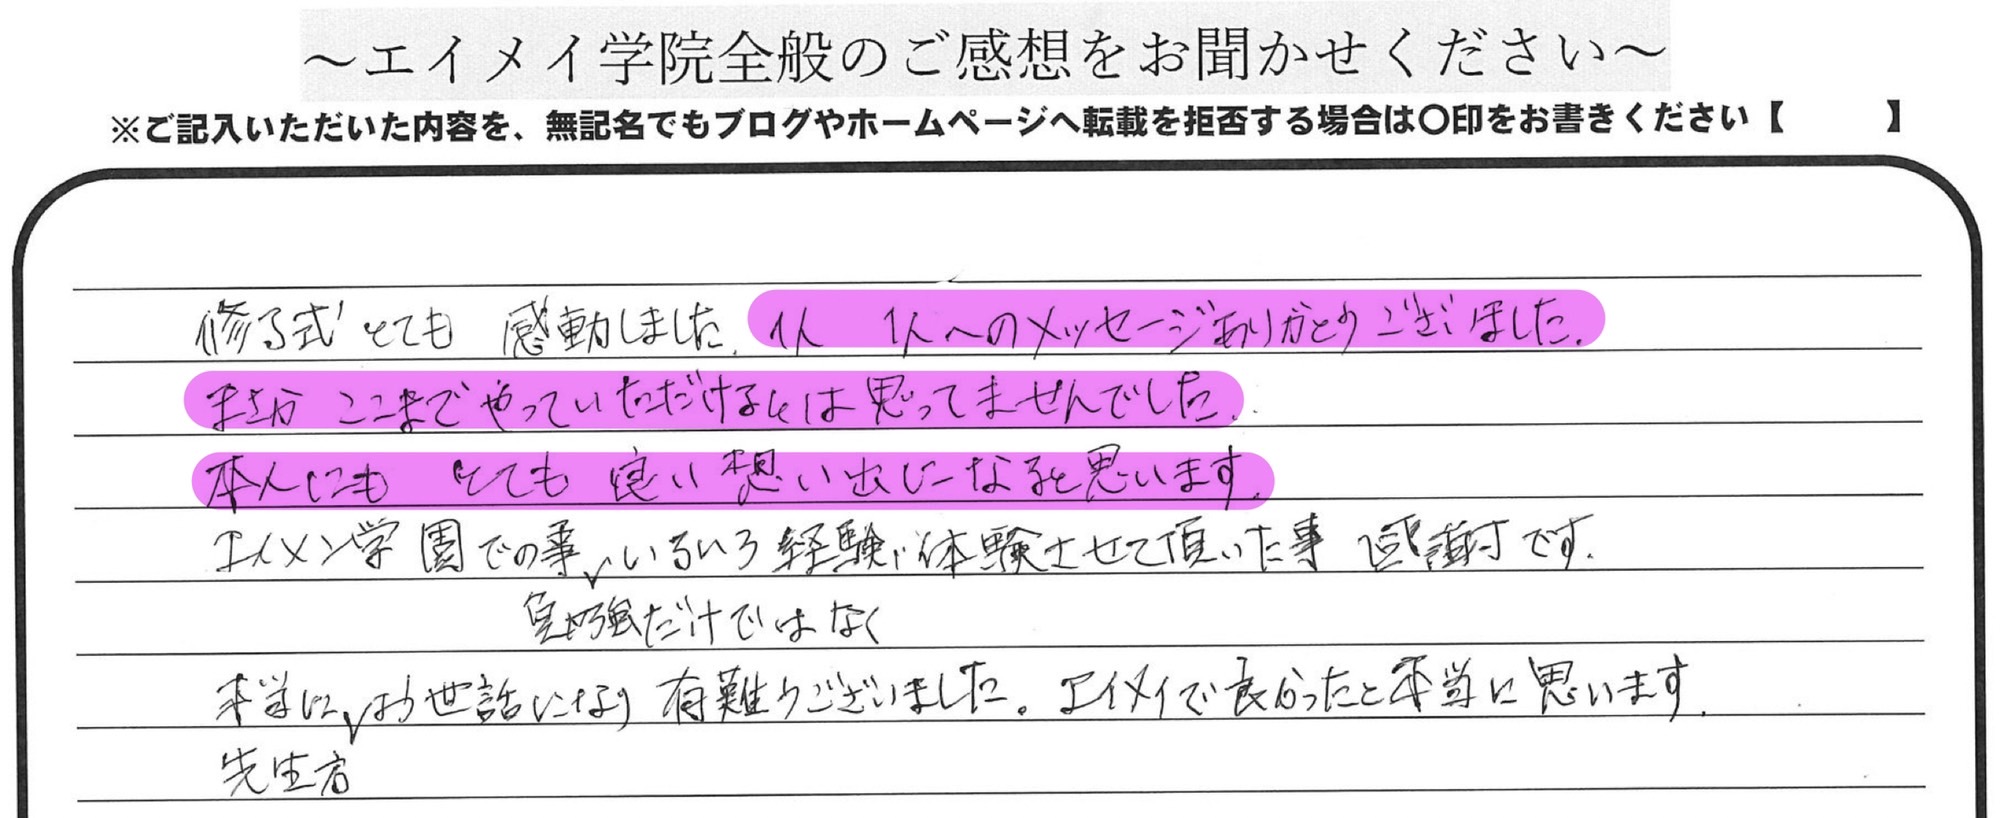 ～エイメイ学院全般のご感想をお聞かせください～
※ご記入いただいた内容を、無記名でもブログやホームページへ転載を拒否する場合は〇印をお書きください【　　】
修了式 とても 感動しました。1人 1人へのメッセージありがとうございました。
まさか ここまでやっていただけるとは思ってませんでした。
本人にも とても 良い想い出になると思います。
エイメン学園での事、いろいろ経験、体験させて頂いた事 感謝です。
勉強だけではなく
本当に お世話になり 有難うございました。エイメイで良かったと本当に思います。
先生方